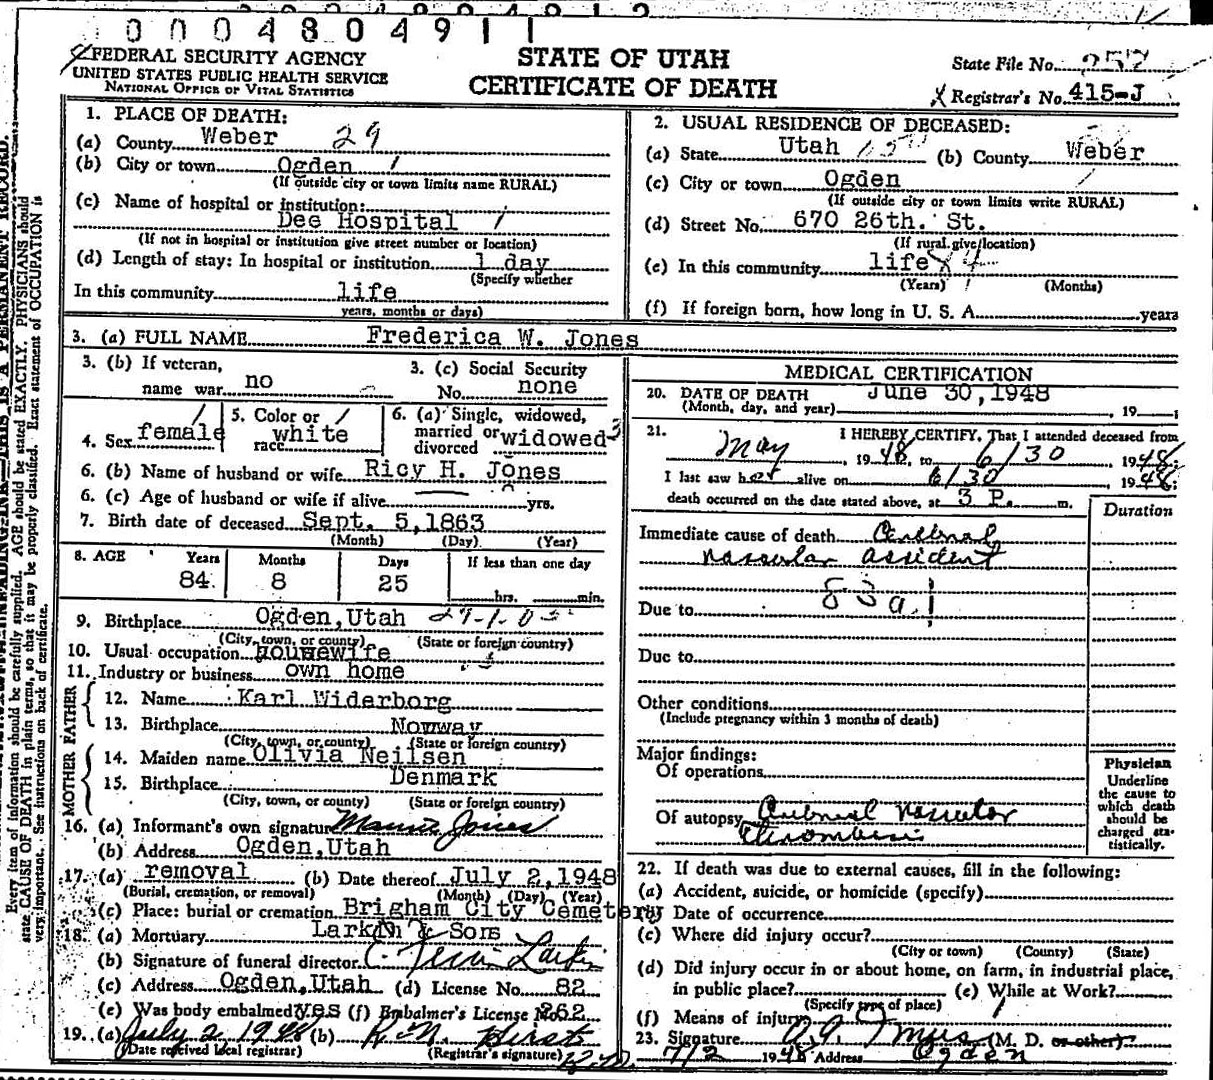 0 0 0 4 8 0 4 9 1 1
FEDERAL SECURITY AGENCY
UNITED STATES PUBLIC HEALTH SERVICE
NATIONAL OFFICE OF VITAL STATISTICS
STATE OF UTAH
CERTIFICATE OF DEATH
State File No. 257
Registrar's No. 415-J
1. PLACE OF DEATH:
(a) County Weber 29
(b) City or town Ogden
(If outside city or town limits name RURAL)
(c) Name of hospital or institution:
Dee Hospital
(If not in hospital or institution give street number or location)
(d) Length of stay: In hospital or institution 1 day
(Specify whether
In this community life
years, months or days)
2. USUAL RESIDENCE OF DECEASED:
(a) State Utah (b) County Weber
(c) City or town Ogden
(If outside city or town limits write RURAL)
(d) Street No. 670 26th. St.
(If rural give location)
(e) In this community life 84
(Years) (Months)
(f) If foreign born, how long in U. S. A. years
3. (a) FULL NAME Frederica W. Jones
3. (b) If veteran,
name war no
3. (c) Social Security
No. none
4. Sex female
5. Color or
race white
6. (a) Single, widowed,
married or
divorced widowed 3
6. (b) Name of husband or wife Ricy H. Jones
6. (c) Age of husband or wife if alive yrs.
7. Birth date of deceased Sept. 5, 1863
(Month) (Day) (Year)
8. AGE Years Months Days If less than one day
84 8 25 hrs. min.
9. Birthplace Ogden, Utah
(City, town, or county) (State or foreign country)
10. Usual occupation housewife
11. Industry or business own home
FATHER
12. Name Karl Widerborg
13. Birthplace Norway
(City, town, or county) (State or foreign country)
MOTHER
14. Maiden name Olivia Neilsen
15. Birthplace Denmark
(City, town, or county) (State or foreign country)
16. (a) Informant's own signature Jones
(b) Address Ogden, Utah
17. (a) removal (b) Date thereof July 2, 1948
(Burial, cremation, or removal) (Month) (Day) (Year)
(c) Place: burial or cremation Brigham City Cemetery
18. (a) Mortuary Larkin & Sons
(b) Signature of funeral director C. Larkin
(c) Address Ogden, Utah (d) License No. 82
(e) Was body embalmed yes (f) Embalmer's License No. 262
19. (a) July 2 1948 (b) R. N. Hirst
(Date received local registrar) (Registrar's signature)
MEDICAL CERTIFICATION
20. DATE OF DEATH June 30, 1948
(Month, day, and year) , 19
21. I HEREBY CERTIFY, That I attended deceased from
May , 1948, to 6/30 , 1948;
I last saw her alive on 6/30 , 1948;
death occurred on the date stated above, at 3 P. m.
Duration
Immediate cause of death Cerebral
vascular accident
83a.1
Due to
Due to
Other conditions
(Include pregnancy within 3 months of death)
Major findings:
Of operations
Of autopsy Cerebral vascular
thrombosis
Physician
Underline
the cause to
which death
should be
charged sta-
tistically.
22. If death was due to external causes, fill in the following:
(a) Accident, suicide, or homicide (specify)
(b) Date of occurrence
(c) Where did injury occur?
(City or town) (County) (State)
(d) Did injury occur in or about home, on farm, in industrial place,
in public place? (e) While at Work?
(Specify type of place)
(f) Means of injury
23. Signature (M. D. or other)
7/2 1948 Address Ogden
Every item of information should be carefully supplied. AGE should be stated EXACTLY. PHYSICIANS should
state CAUSE OF DEATH in plain terms, so that it may be properly classified. Exact statement of OCCUPATION is
very important. See instructions on back of certificate.